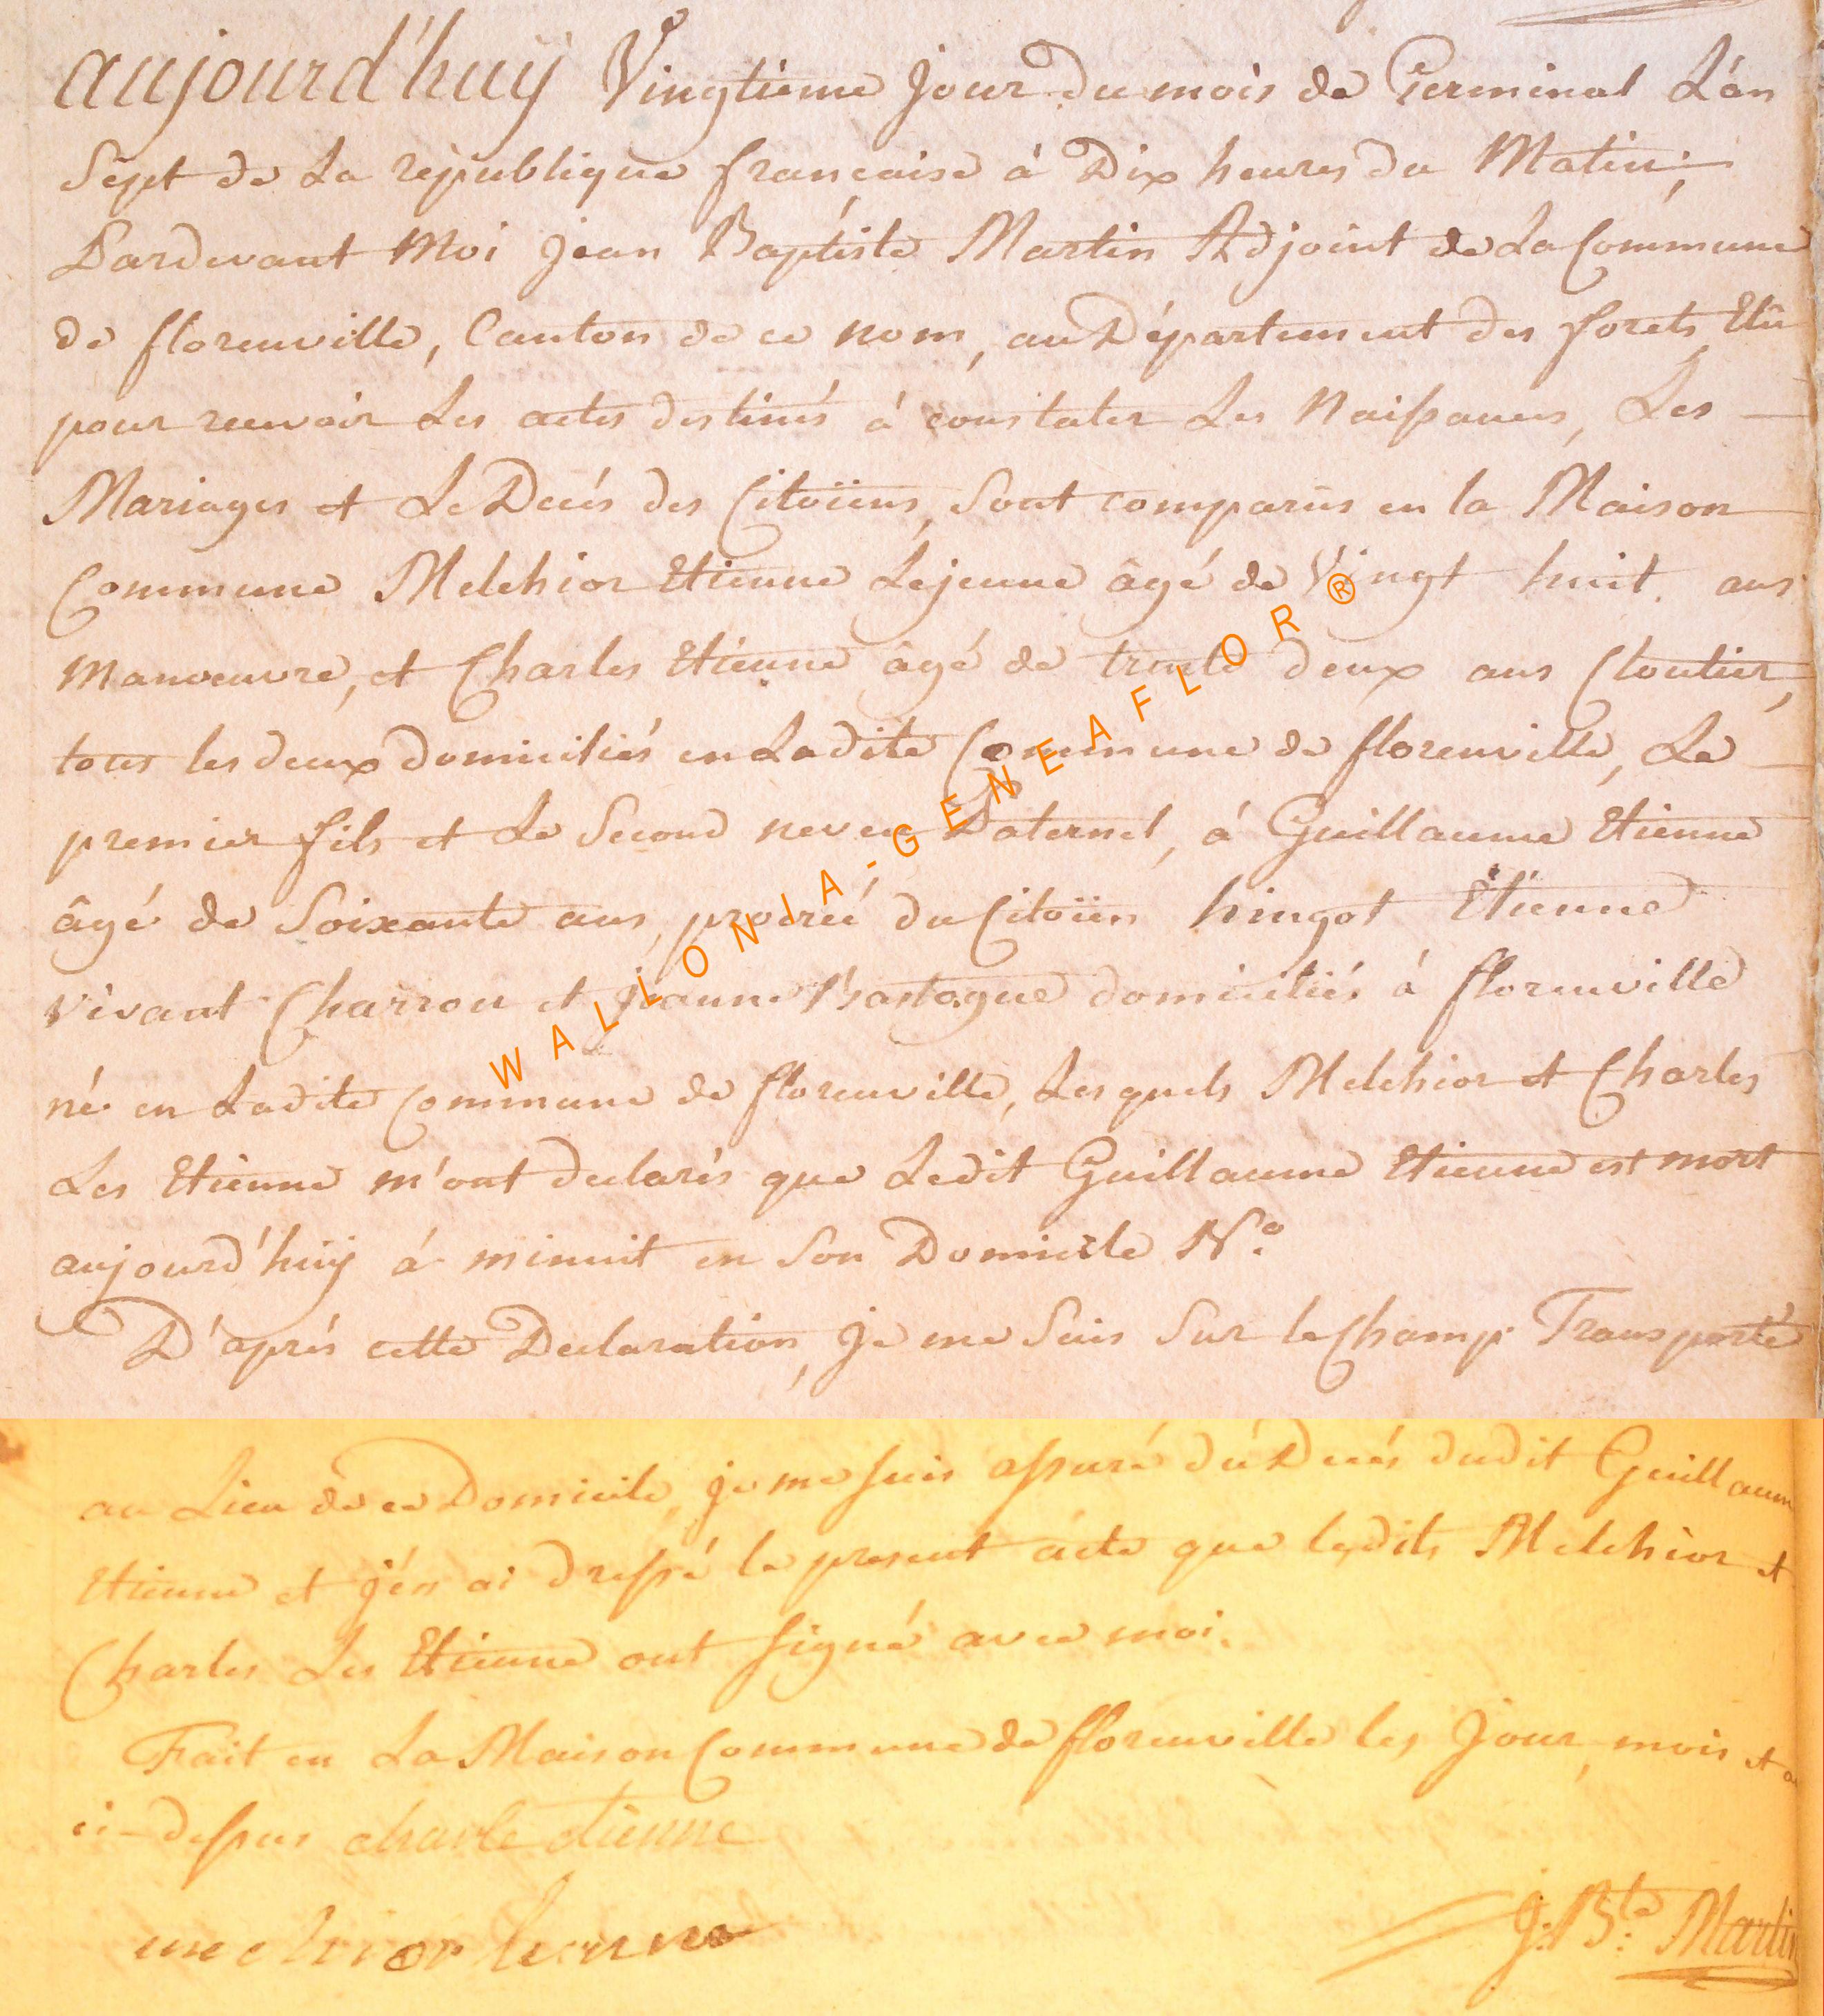 aujourd'huÿ Vingtieme jour du mois de Germinal L'an
Sept de La république française à Dix heures du Matin;
Pardevant Moi jean Baptiste Martin Adjoint de La Commune
de florenville, Canton de ce nom, au Département des forets Elû
pour recevoir Les actes destinés à constater Les Naissances, Les
Mariages et Le Decés des Citoïens, Sont comparûs en la Maison
Commune Melchior Etienne Lejeune âgé de Vingt huit ans
Manoeuvre, et Charles Etienne âgé de trente deux ans Cloutier,
tous les deux domiciliés en Ladite Commune de florenville, Le
premier fils et Le Second neveu Paternel, á Guillaume Etienne
âgé de Soixante ans, procréé du Citoïen hingot Etienne
vivant Charron et jeanne Bastogne domiciliés à florenville
né en Ladite Commune de florenville, Lesquels Melchior et Charles
Les Etienne m'ont declarés que Ledit Guillaume Etienne est mort
aujourd'huÿ á minuit en Son Domicile N.o
D'aprés cette Declaration, je me Suis Sur le Champ Transporté
au Lieu de ce Domicile, je me suis assuré du Decés dudit Guillaum
Etienne et j'én ai dressé le present acte que lesdits Melchior et
Charles Les Etienne ont signé avec moi.
Fait en La Maison Commune de florenville les jour, mois et a
ci-dessus charle etienne
mechior tienne
J: B.te Martin
WALLONIA-GENEAFLOR®